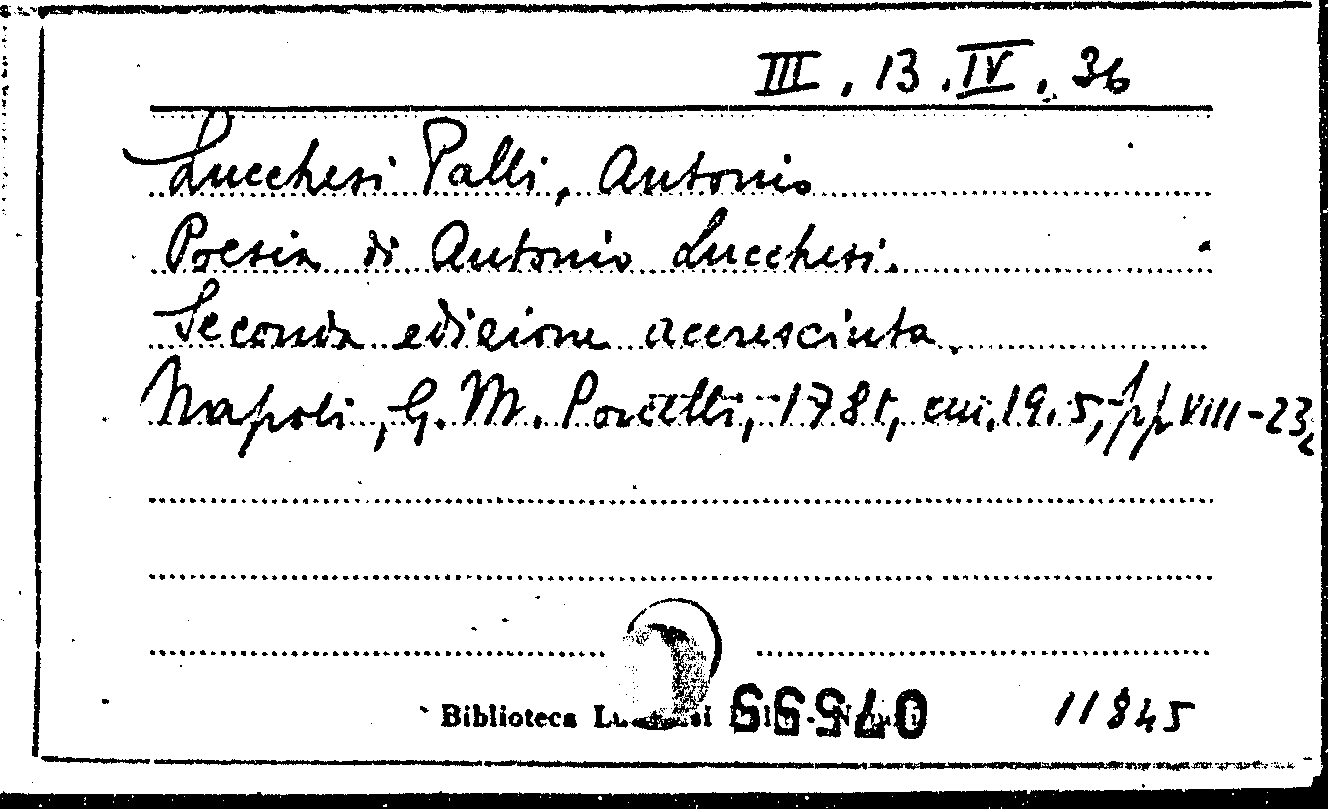 III. 13. IV. 36
Lucchesi Palli, Antonio
Poesia di Antonio Lucchesi.
Seconda edizione accresciuta.
Napoli, G. M. Porcelli, 1781, cm. 19.5, pp. VIII-23,
Biblioteca 11845